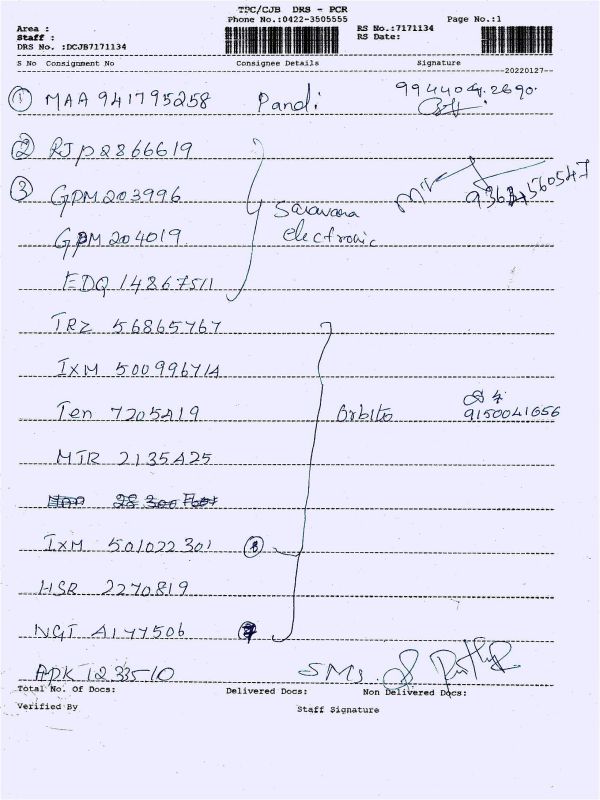 TPC/CJB DRS - PCR
Phone No.:0422-3505555 Page No.:1
Area :
Staff : RS No.:7171134
DRS No. :DCJB7171134 RS Date:
S No Consignment No Consignee Details Signature
20220127
① MAA 941795258 Pandi 994404.2690.
② RJP2866619
③ GPM203996 9364560547
Saravana
GPM 204019 electronic
EDQ 14867511
TRZ 56865767
IXM 500996714
Ten 7205419 Orbito 9150041656
MTR 2135425
IXM 501022301 ⑧
HSR 2270819
NGT A177506
APK 1233510 SMs.
Total No. Of Docs: Delivered Docs: Non Delivered Docs:
Verified By Staff Signature